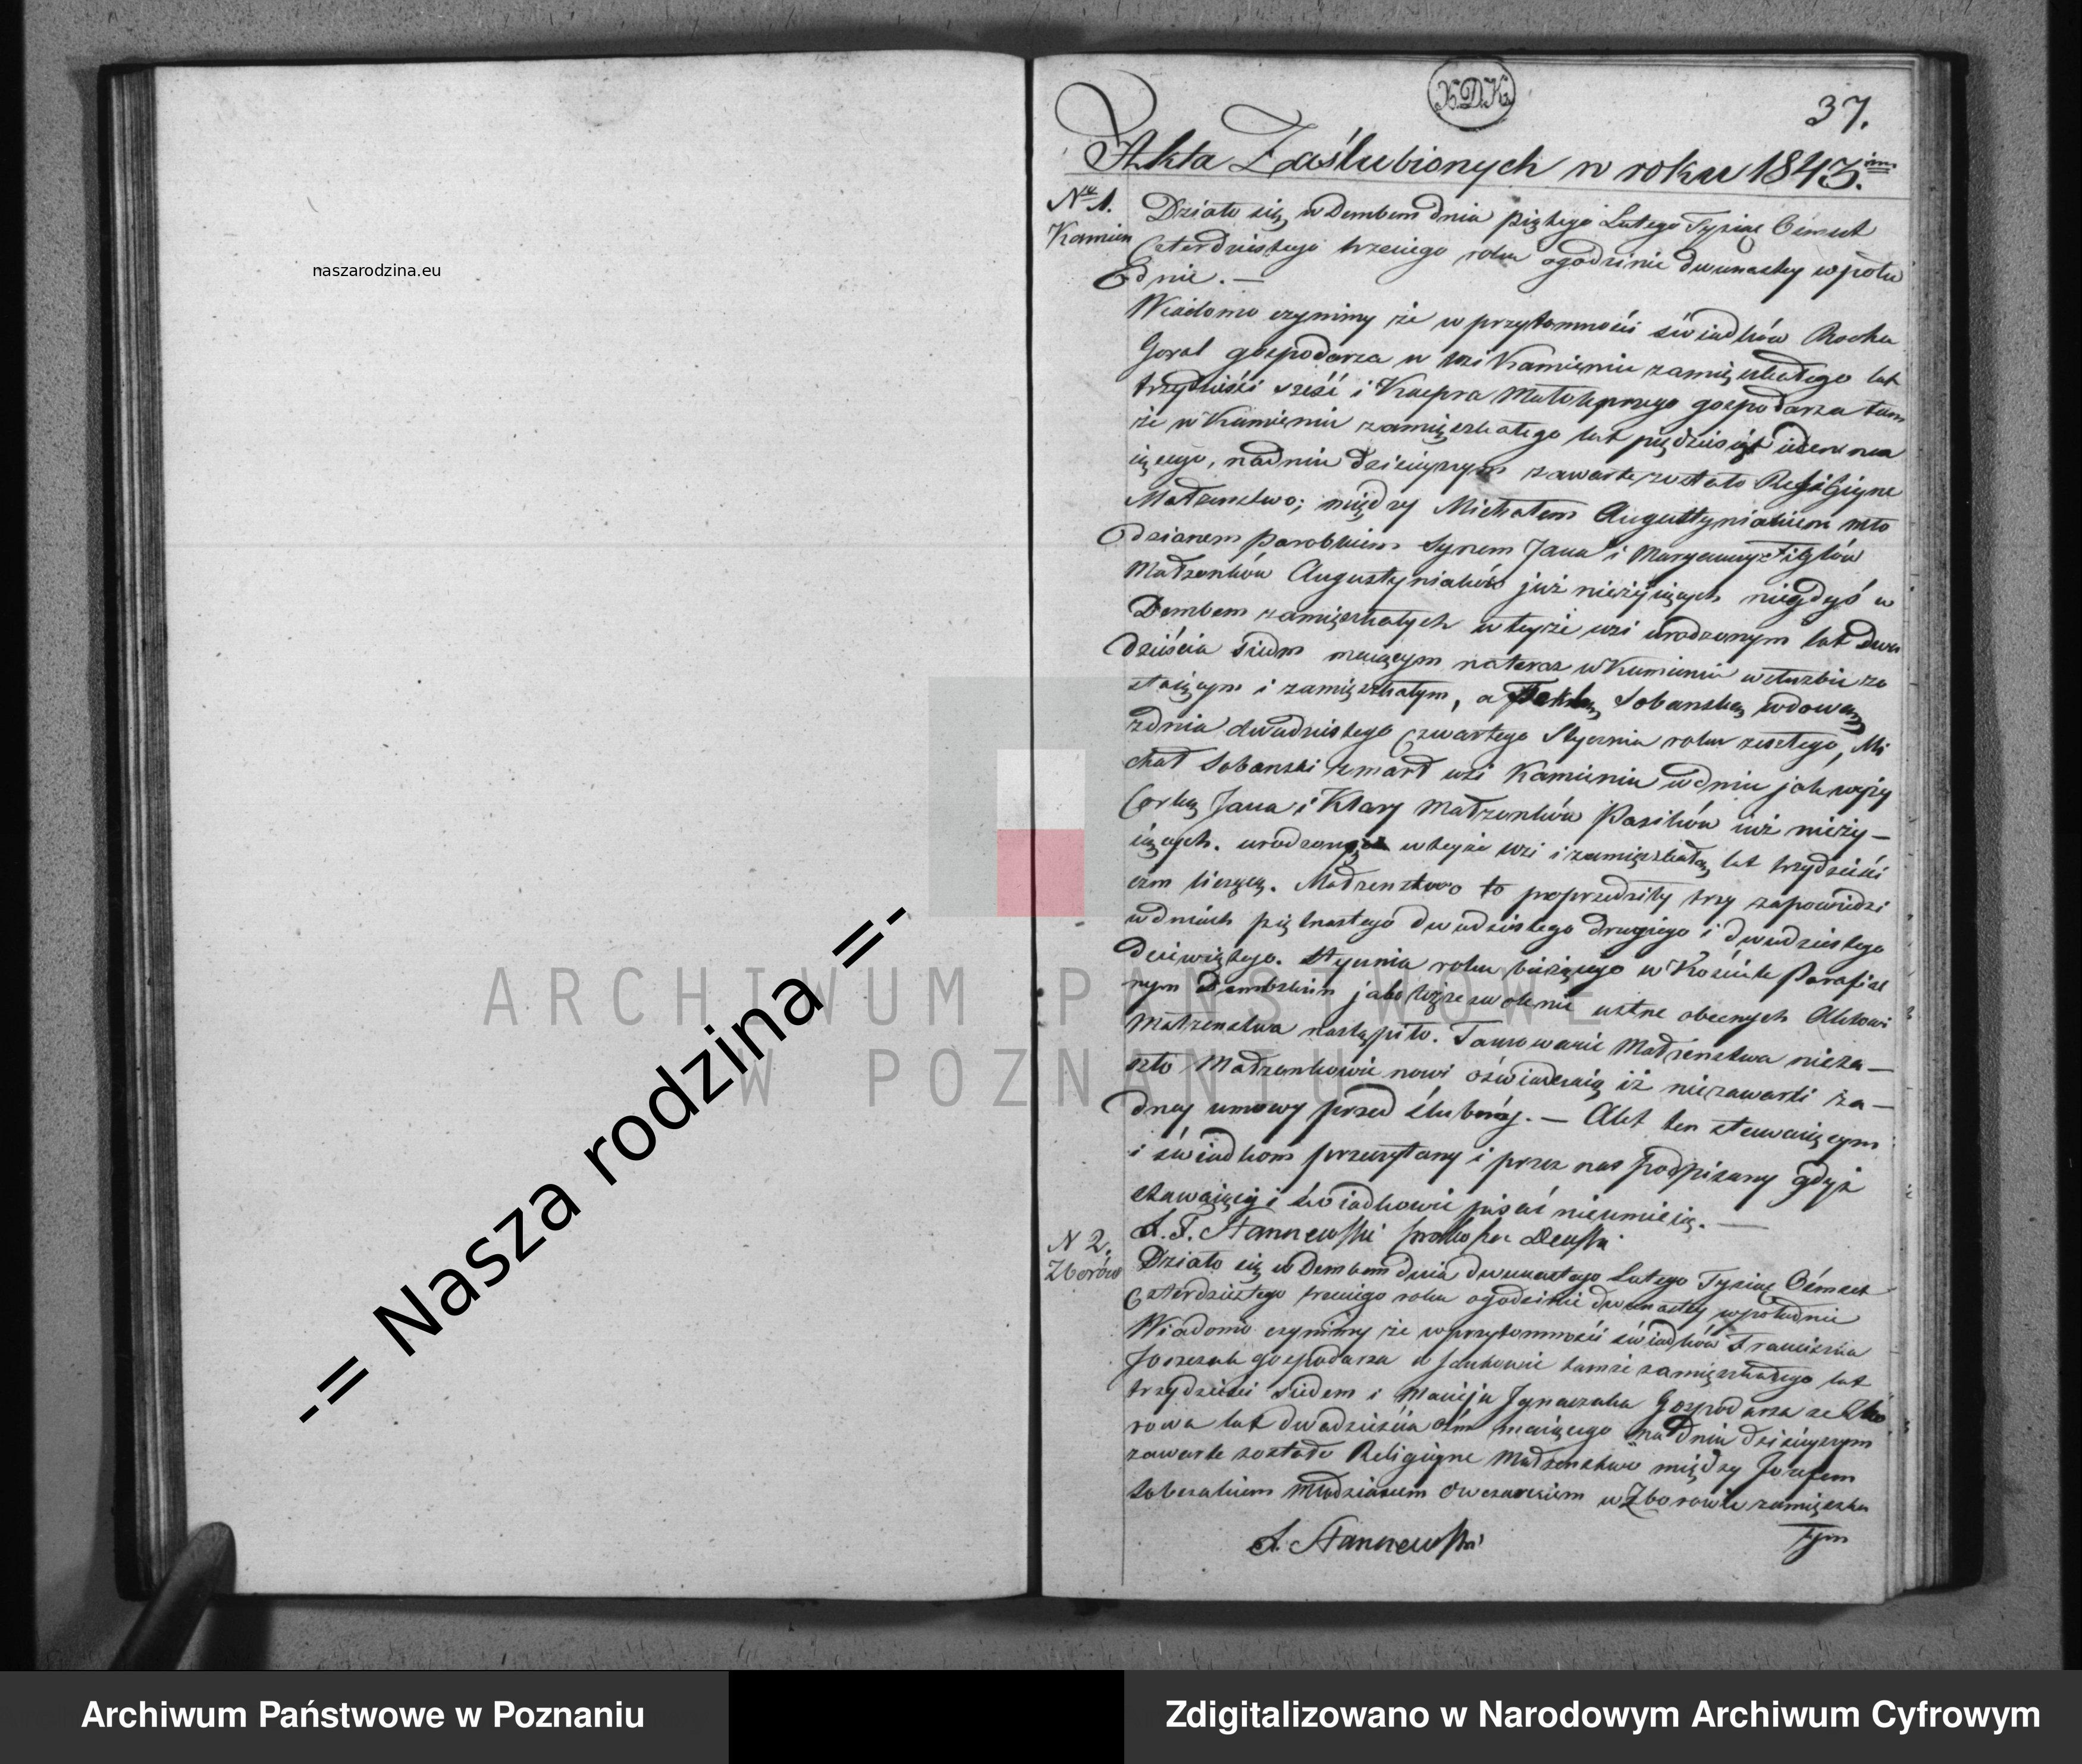 naszarodzina.eu
-= Nasza rodzina =-
ARCHIWUM PAŃSTWOWE
W POZNANIU
37.
Akta Zaślubionych w roku 1843.
N 1.
Kamien
Działo się w Dembem dnia piątego Lutego Tysiąc Ośmset
Czterdziestego trzeciego roku o godzinie dwunastey w połu
dnie. —
Wiadomo czynimy że w przytomności świadków Rocha
Goral gospodarza w wsi Kamieniu zamięszkałego lat
trzydzieści sześć i Kacpra gospodarza tam
że w Kamieniu zamięszkałego lat pięćdziesiąt
iącego, na dniu dzisieyszym zawarte zostało Religiyne
Małżenstwo; między Michałem Augustyniakiem mło
dzianem parobkiem synem Jana i Maryanny
Małżonków Augustyniaków już nieżyiących niegdyś w
Dembem zamięszkałych w teyże wsi urodzonym lat dwa
dzieścia siedm maiącym na teraz w Kamieniu w służbie zo
staiącym i zamięszkałym, a Teklą Sobanską wdową
z dnia dwudziestego czwartego Stycznia roku zeszłego, Mi
chał Sobanski zmarł wsi Kamieniu w dniu jak wyży
Corką Jana i Klary Małżonków Pasików iuż nieży—
iących. urodzoną w teyże wsi i zamięszkałą lat trzydzieści
ośm liczącą. Małżenstwo to poprzedziły trzy zapowiedzi
w dniach piętnastego dwudziestego drugiego i dwudziestego
dziewiątego. Stycznia roku bieżącego w Kościele Parafial
nym Dembskim jako też zezwolenie ustne obecnych Aktowi
Małżenstwa nastąpiło. Tamowanie Małżenstwa nieza—
szło Małżonkowie nowi oświadczaią iż niezawarli ża—
dney umowy przed ślubney. — Akt ten stawaiącym
i świadkom przeczytany i przez nas podpisany gdyż
stawaiący i świadkowie pisać nieumieią. —
N 2.
Zborów
Działo się w Dembem dnia dwunastego Lutego Tysiąc Ośmset
Czterdziestego trzeciego roku o godzinie dwunastey w południe
Wiadomo czynimy że w przytomności świadków Franciszka
gospodarza w tamże zamięszkałego lat
trzydzieści siedem i Macieja Ignaczaka Gospodarza ze Zbo
rowa lat dwadzieścia ośm maiącego na dniu dzisieyszym
zawarte zostało Religiyne Małżenstwo między Jozefem
Sobczakiem Młodzianem Owczarzem w Zborowie zamięszka
łym
Archiwum Państwowe w Poznaniu
Zdigitalizowano w Narodowym Archiwum Cyfrowym